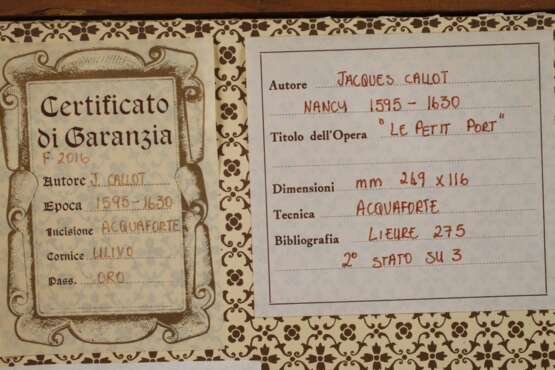 Certificato
di Garanzia
F 2016
Autore J. CALLOT
Epoca 1595-1630
Incisione ACQUAFORTE
Cornice ULIVO
Pass. ORO
Autore JACQUES CALLOT
NANCY 1595-1630
Titolo dell'Opera "LE PETIT PORT"
Dimensioni mm 249 x 116
Tecnica ACQUAFORTE
Bibliografia LIEURE 275
2° STATO SU 3